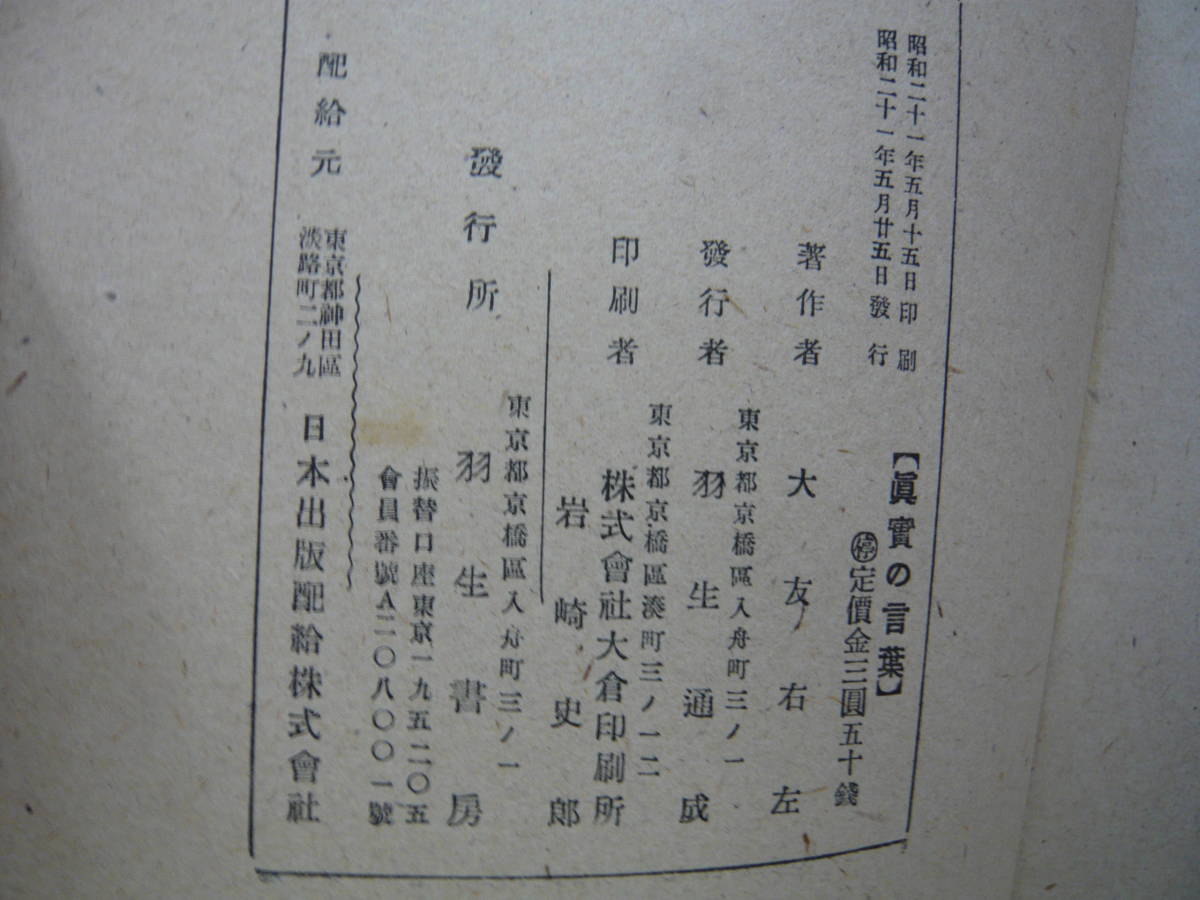 昭和二十一年五月十五日印刷
昭和二十一年五月廿五日發行
【眞實の言葉】
㊡定價金三圓五十錢
著作者 大友右左
東京都京橋區入舟町三ノ一
發行者 羽生通成
東京都京橋區湊町三ノ一二
印刷者 株式會社大倉印刷所
岩崎史郎
東京都京橋區入舟町三ノ一
發行所 羽生書房
振替口座東京一九五二〇五
會員番號A二〇八〇〇一號
配給元 東京都神田區
淡路町二ノ九
日本出版配給株式會社